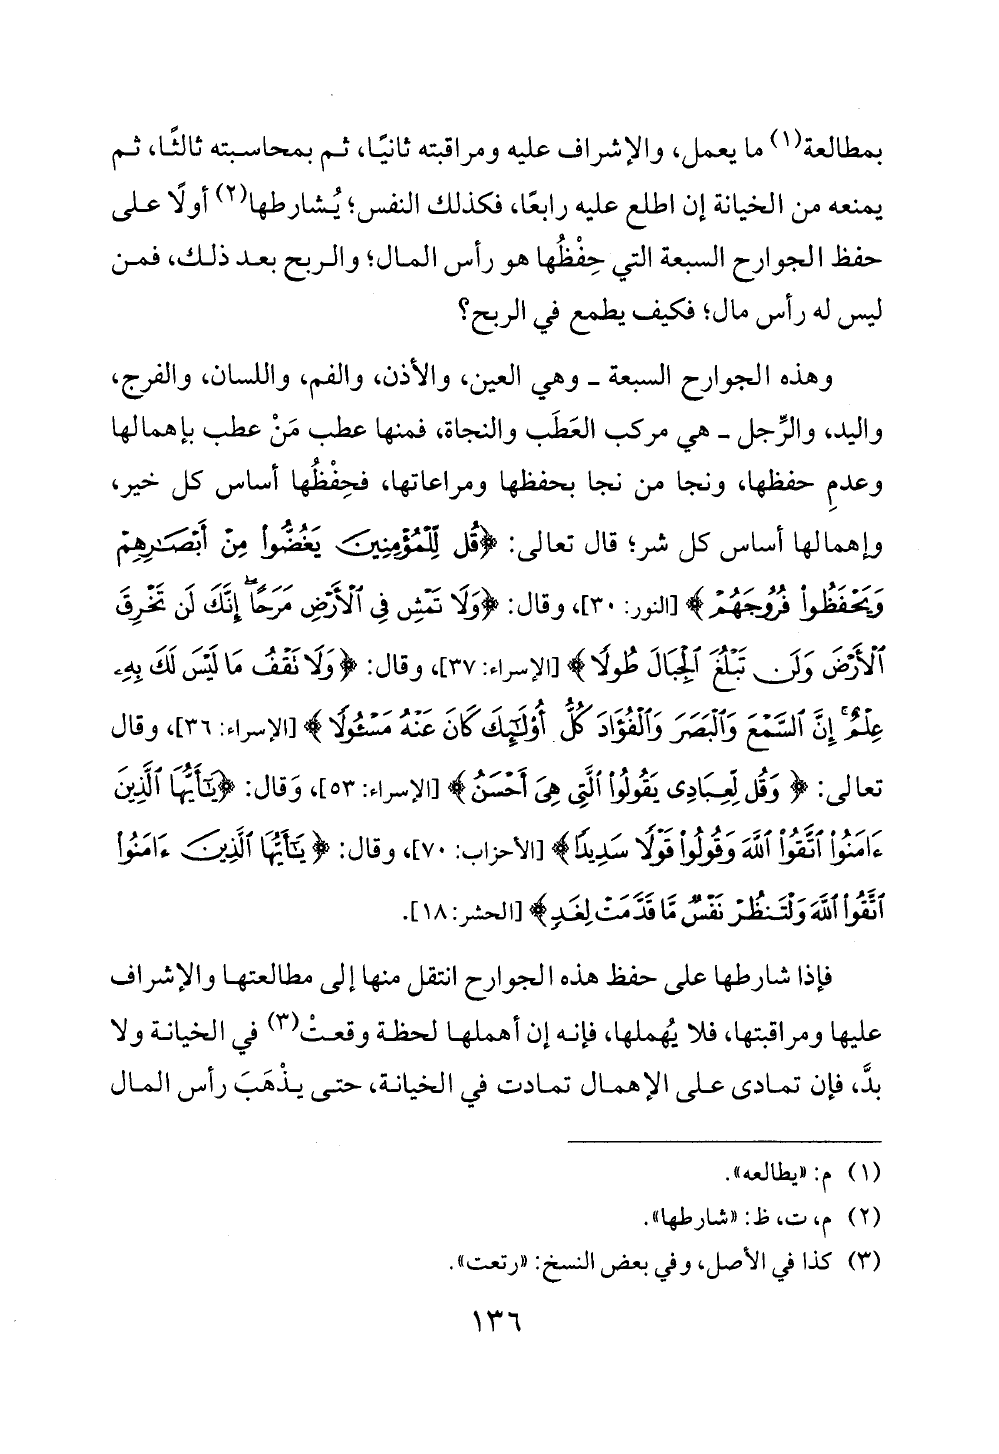 بمطالعة(١) ما يعمل، والإشراف عليه ومراقبته ثانيًا، ثم بمحاسبته ثالثًا، ثم
يمنعه من الخيانة إن اطلع عليه رابعًا، فكذلك النفس؛ يُشارطها(٢) أولًا على
حفظ الجوارح السبعة التي حِفْظُها هو رأس المال؛ والربح بعد ذلك، فمن
ليس له رأس مال؛ فكيف يطمع في الربح؟
وهذه الجوارح السبعة ـ وهي العين، والأذن، والفم، واللسان، والفرج،
واليد، والرِّجل ـ هي مركب العَطَب والنجاة، فمنها عطب مَنْ عطب بإهمالها
وعدمِ حفظها، ونجا من نجا بحفظها ومراعاتها، فحِفْظُها أساس كل خير،
وإهمالها أساس كل شر؛ قال تعالى: ﴿قُل لِّلْمُؤْمِنِينَ يَغُضُّواْ مِنْ أَبْصَٰرِهِمْ
وَيَحْفَظُواْ فُرُوجَهُمْ﴾ [النور: ٣٠]، وقال: ﴿وَلَا تَمْشِ فِي ٱلْأَرْضِ مَرَحًاۖ إِنَّكَ لَن تَخْرِقَ
ٱلْأَرْضَ وَلَن تَبْلُغَ ٱلْجِبَالَ طُولًا﴾ [الإسراء: ٣٧]، وقال: ﴿وَلَا تَقْفُ مَا لَيْسَ لَكَ بِهِۦ
عِلْمٌۚ إِنَّ ٱلسَّمْعَ وَٱلْبَصَرَ وَٱلْفُؤَادَ كُلُّ أُوْلَٰٓئِكَ كَانَ عَنْهُ مَسْـُٔولًا﴾ [الإسراء: ٣٦]، وقال
تعالى: ﴿وَقُل لِّعِبَادِى يَقُولُواْ ٱلَّتِى هِىَ أَحْسَنُ﴾ [الإسراء: ٥٣]، وَقال: ﴿يَٰٓأَيُّهَا ٱلَّذِينَ
ءَامَنُواْ ٱتَّقُواْ ٱللَّهَ وَقُولُواْ قَوْلًا سَدِيدًا﴾ [الأحزاب: ٧٠]، وقال: ﴿يَٰٓأَيُّهَا ٱلَّذِينَ ءَامَنُواْ
ٱتَّقُواْ ٱللَّهَ وَلْتَنظُرْ نَفْسٌ مَّا قَدَّمَتْ لِغَدٍ﴾ [الحشر: ١٨].
فإذا شارطها على حفظ هذه الجوارح انتقل منها إلى مطالعتها والإشراف
عليها ومراقبتها، فلا يُهملها، فإنه إن أهملها لحظة وقعتْ(٣) في الخيانة ولا
بدَّ، فإن تمادى على الإهمال تمادت في الخيانة، حتى يذْهَبَ رأس المال
(١) م: «يطالعه».
(٢) م، ت، ظ: «شارطها».
(٣) كذا في الأصل، وفي بعض النسخ: «رتعت».
١٣٦